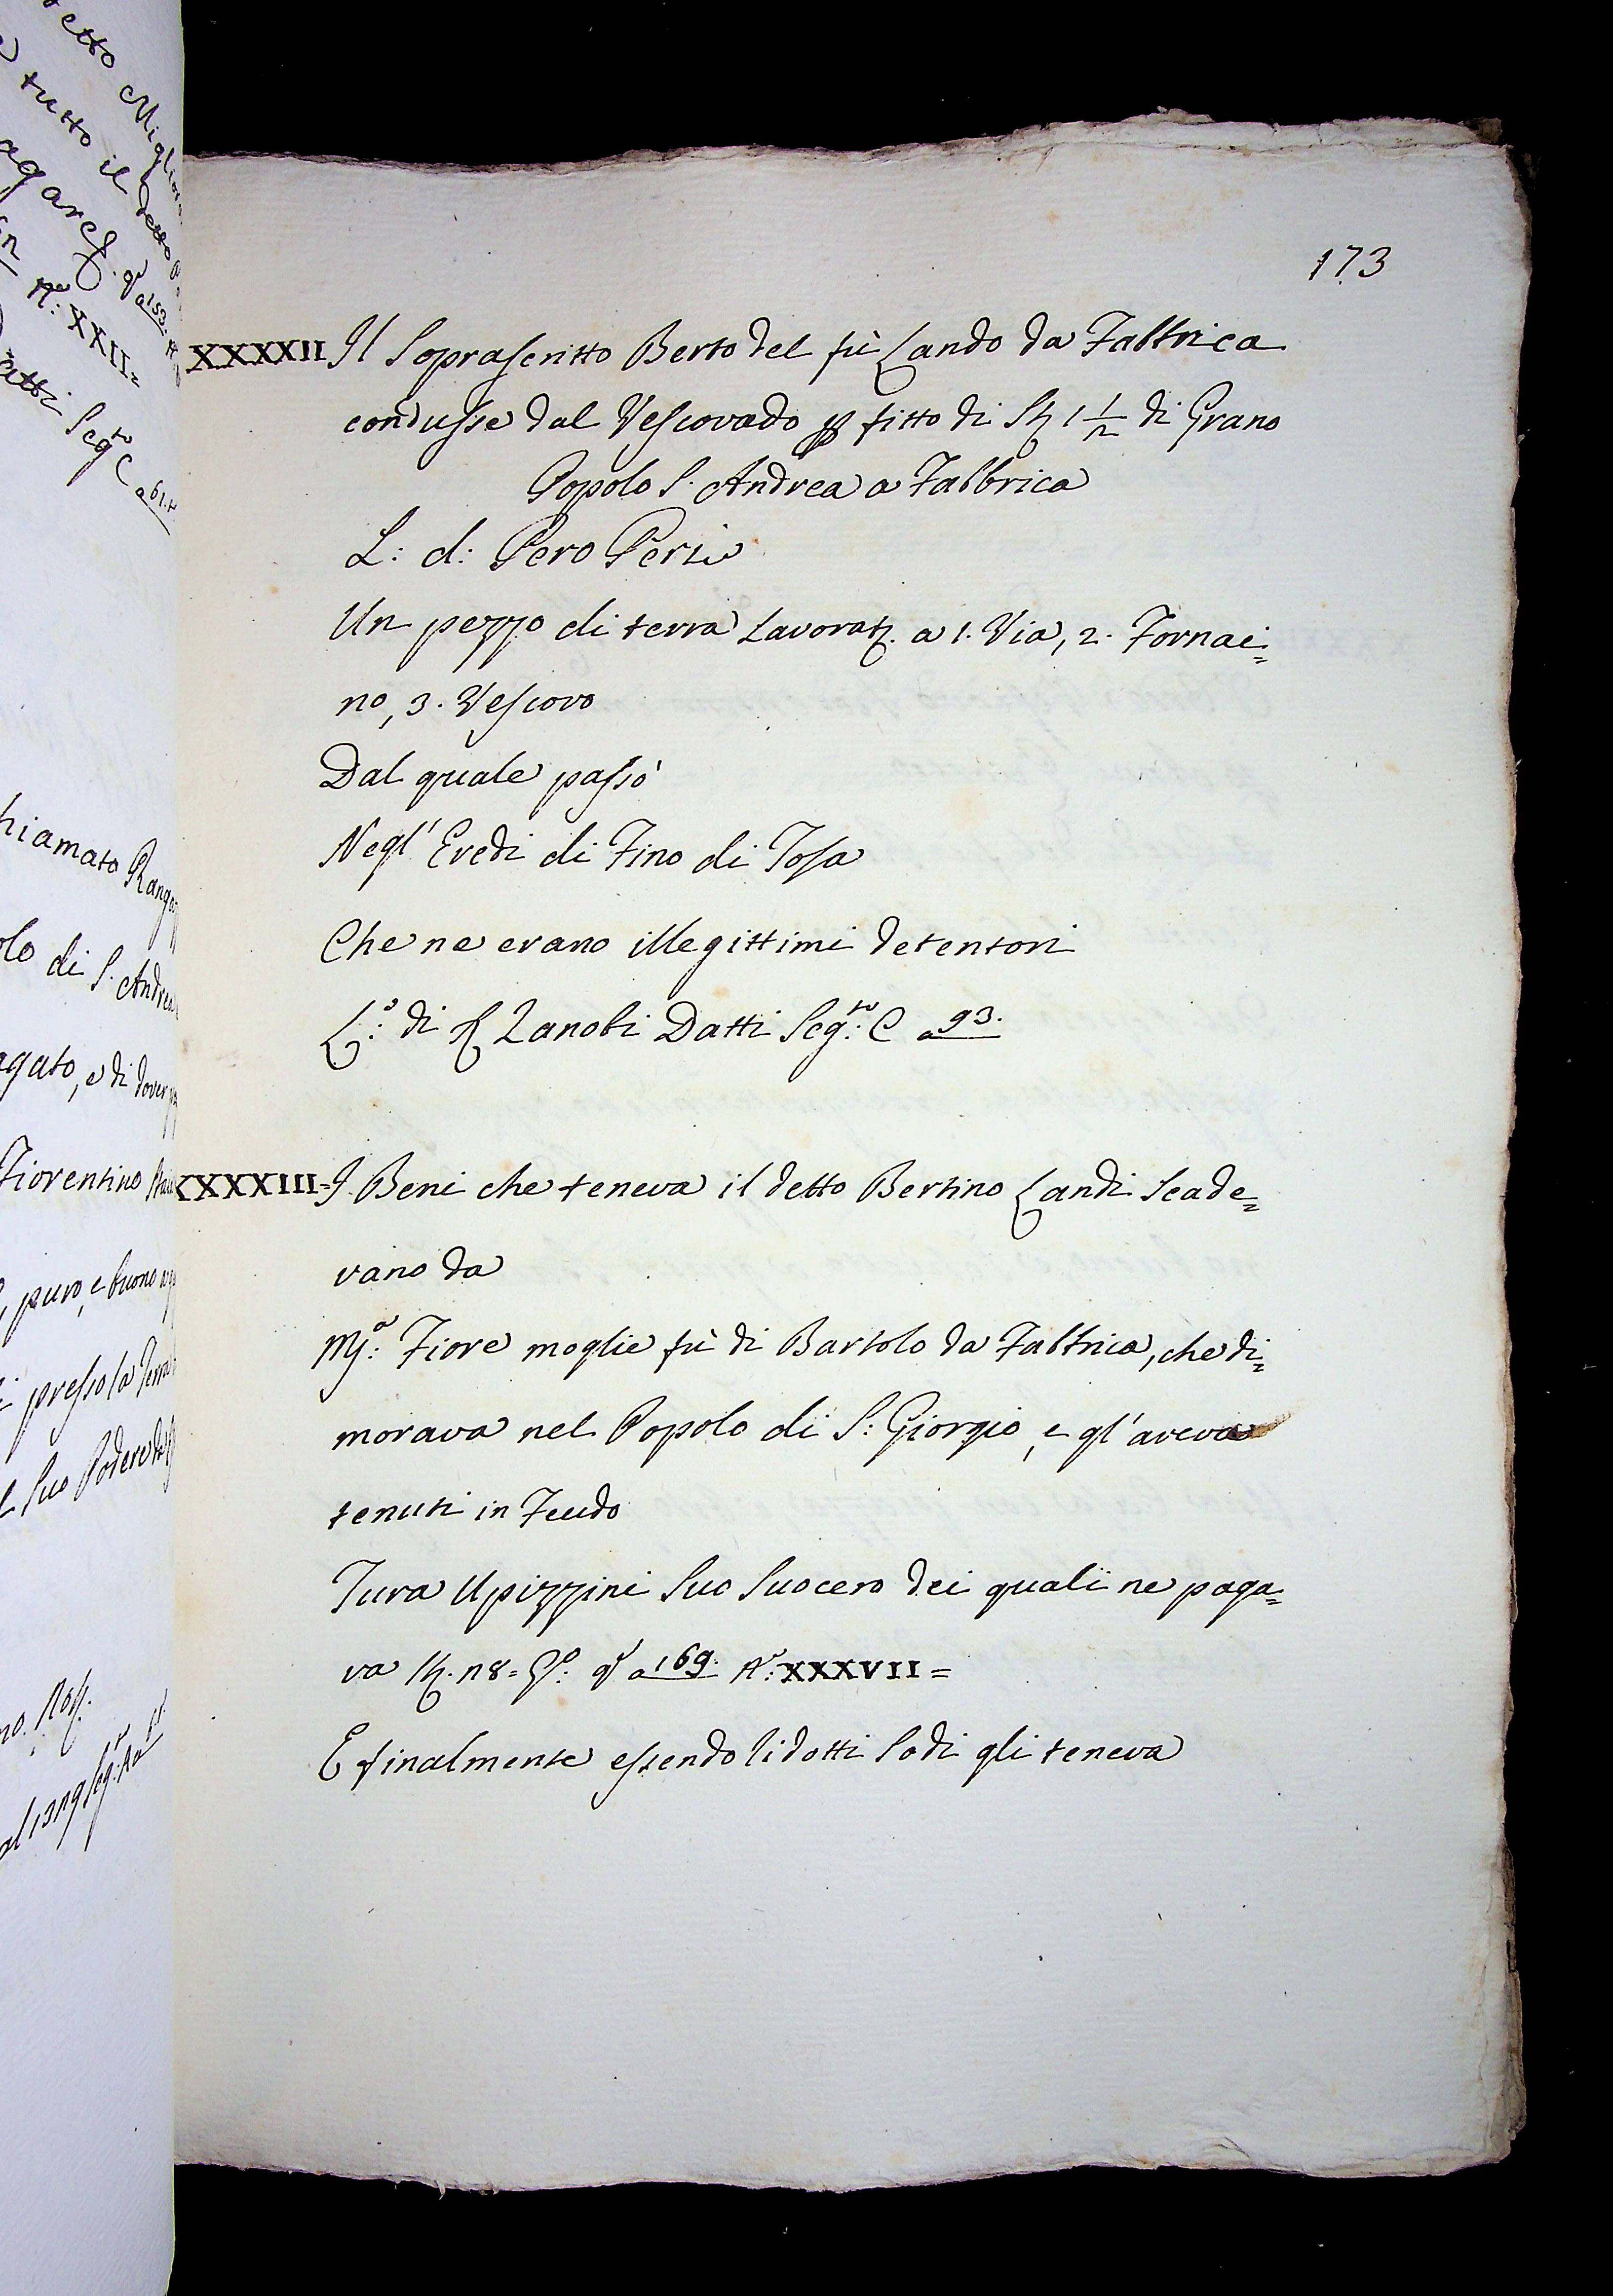 etto Miglior
tutto il detto
agare
N.º: XXII=
atti Seg.to C a 61.t
hiamato Rang
olo di S. Andrea
agato, e di dover
Fiorentino
puro, e buono
presso la Terra
Suo Podere
173
XXXXII Il Soprascritto Berto del fù Lando da Fabbrica
condusse dal Vescovado p fitto di St 1 1/2 di Grano
Popolo S. Andrea a Fabbrica
L: d: Pero Perii
Un pezzo di terra Lavorat. a 1. Via, 2. Fornai=
no, 3. Vescovo
Dal quale passò
Negl' Eredi di Fino di Tosa
Che ne erano illegittimi detentori
L.o: di Zanobi Datti Seg.to: C a 93.
XXXXIII=I Beni che teneva il detto Bertino Landi Scade=
vano da
M.a: Fiore moglie fù di Bartolo da Fabbrica, che di=
morava nel Popolo di S: Giorgio, e gl' aveva
tenuti in Feudo
Tura Upizzini Suo Suocero dei quali ne paga=
va St. 18= a 169. N.o: XXXVII=
E finalmente essendo Ridotti Sodi gli teneva